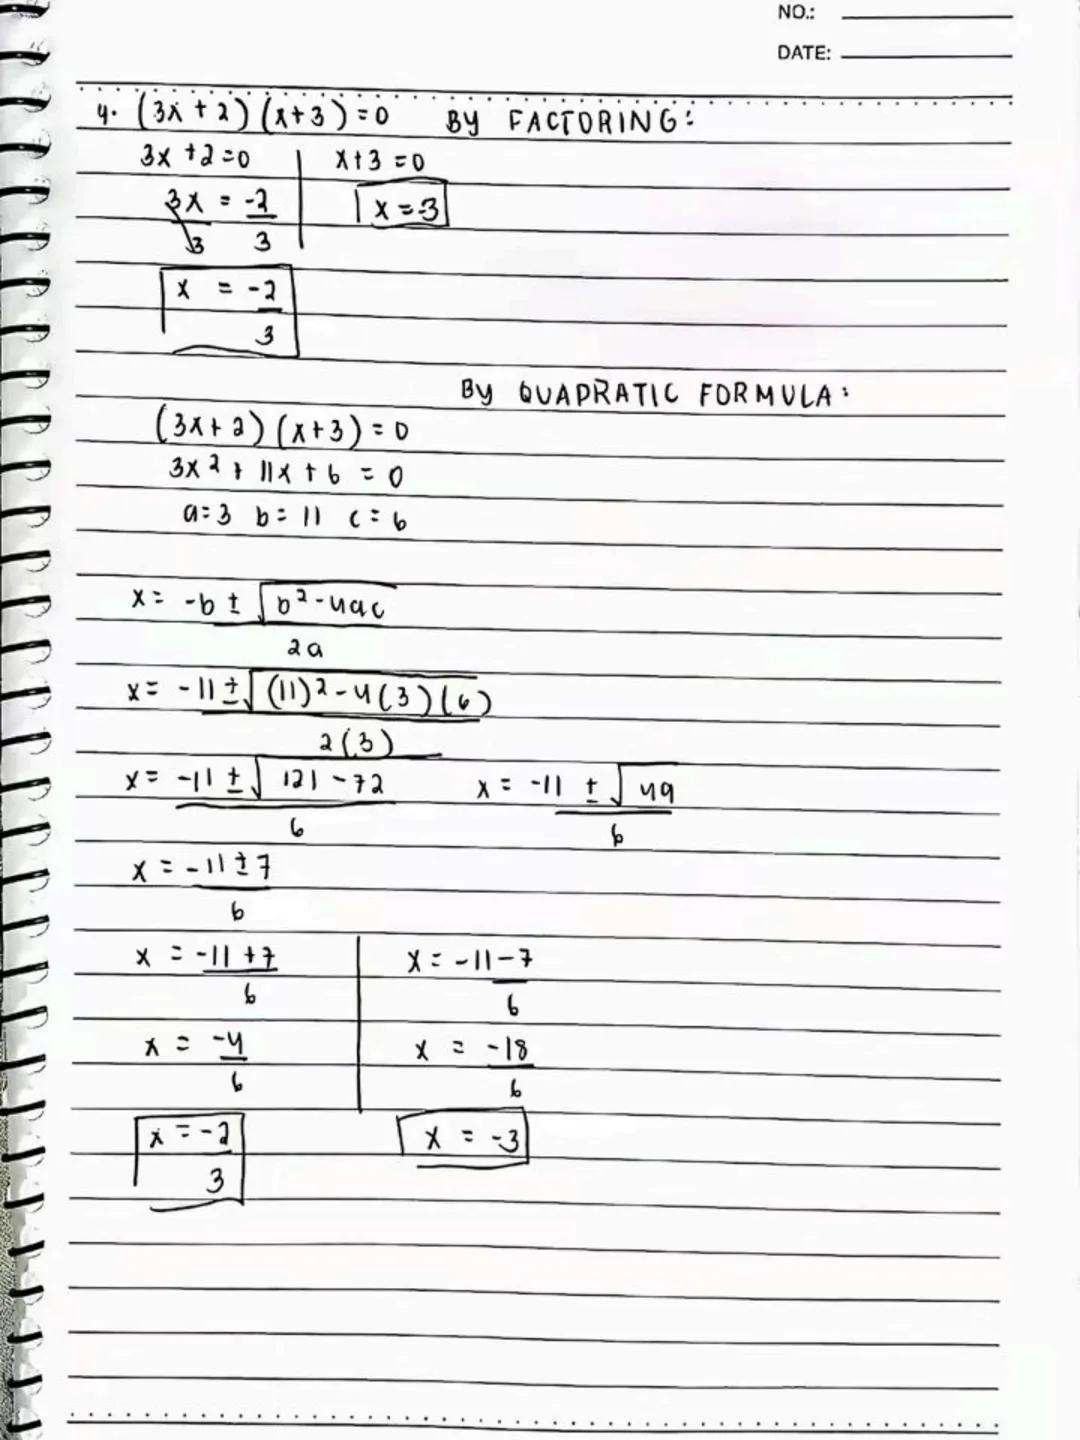 NO.:
DATE:
4. (3x + 2) (x+3) = 0 By FACTORING:
3x + 2 = 0 x+3 = 0
3x = -2 x = -3
3 3
x = -2
3
By QUADRATIC FORMULA:
(3x+2) (x+3) = 0
3x² + 11x + 6 = 0
a=3 b=11 c=6
x= -b ± √b²-4ac
2a
x= -11 ± √(11)²-4(3)(6)
2(3)
x= -11 ± √121 -72 x= -11 ± √49
6 6
x = -11 ± 7
6
x = -11 +7 x= -11-7
6 6
x = -4 x = -18
6 6
x = -2 x = -3
3